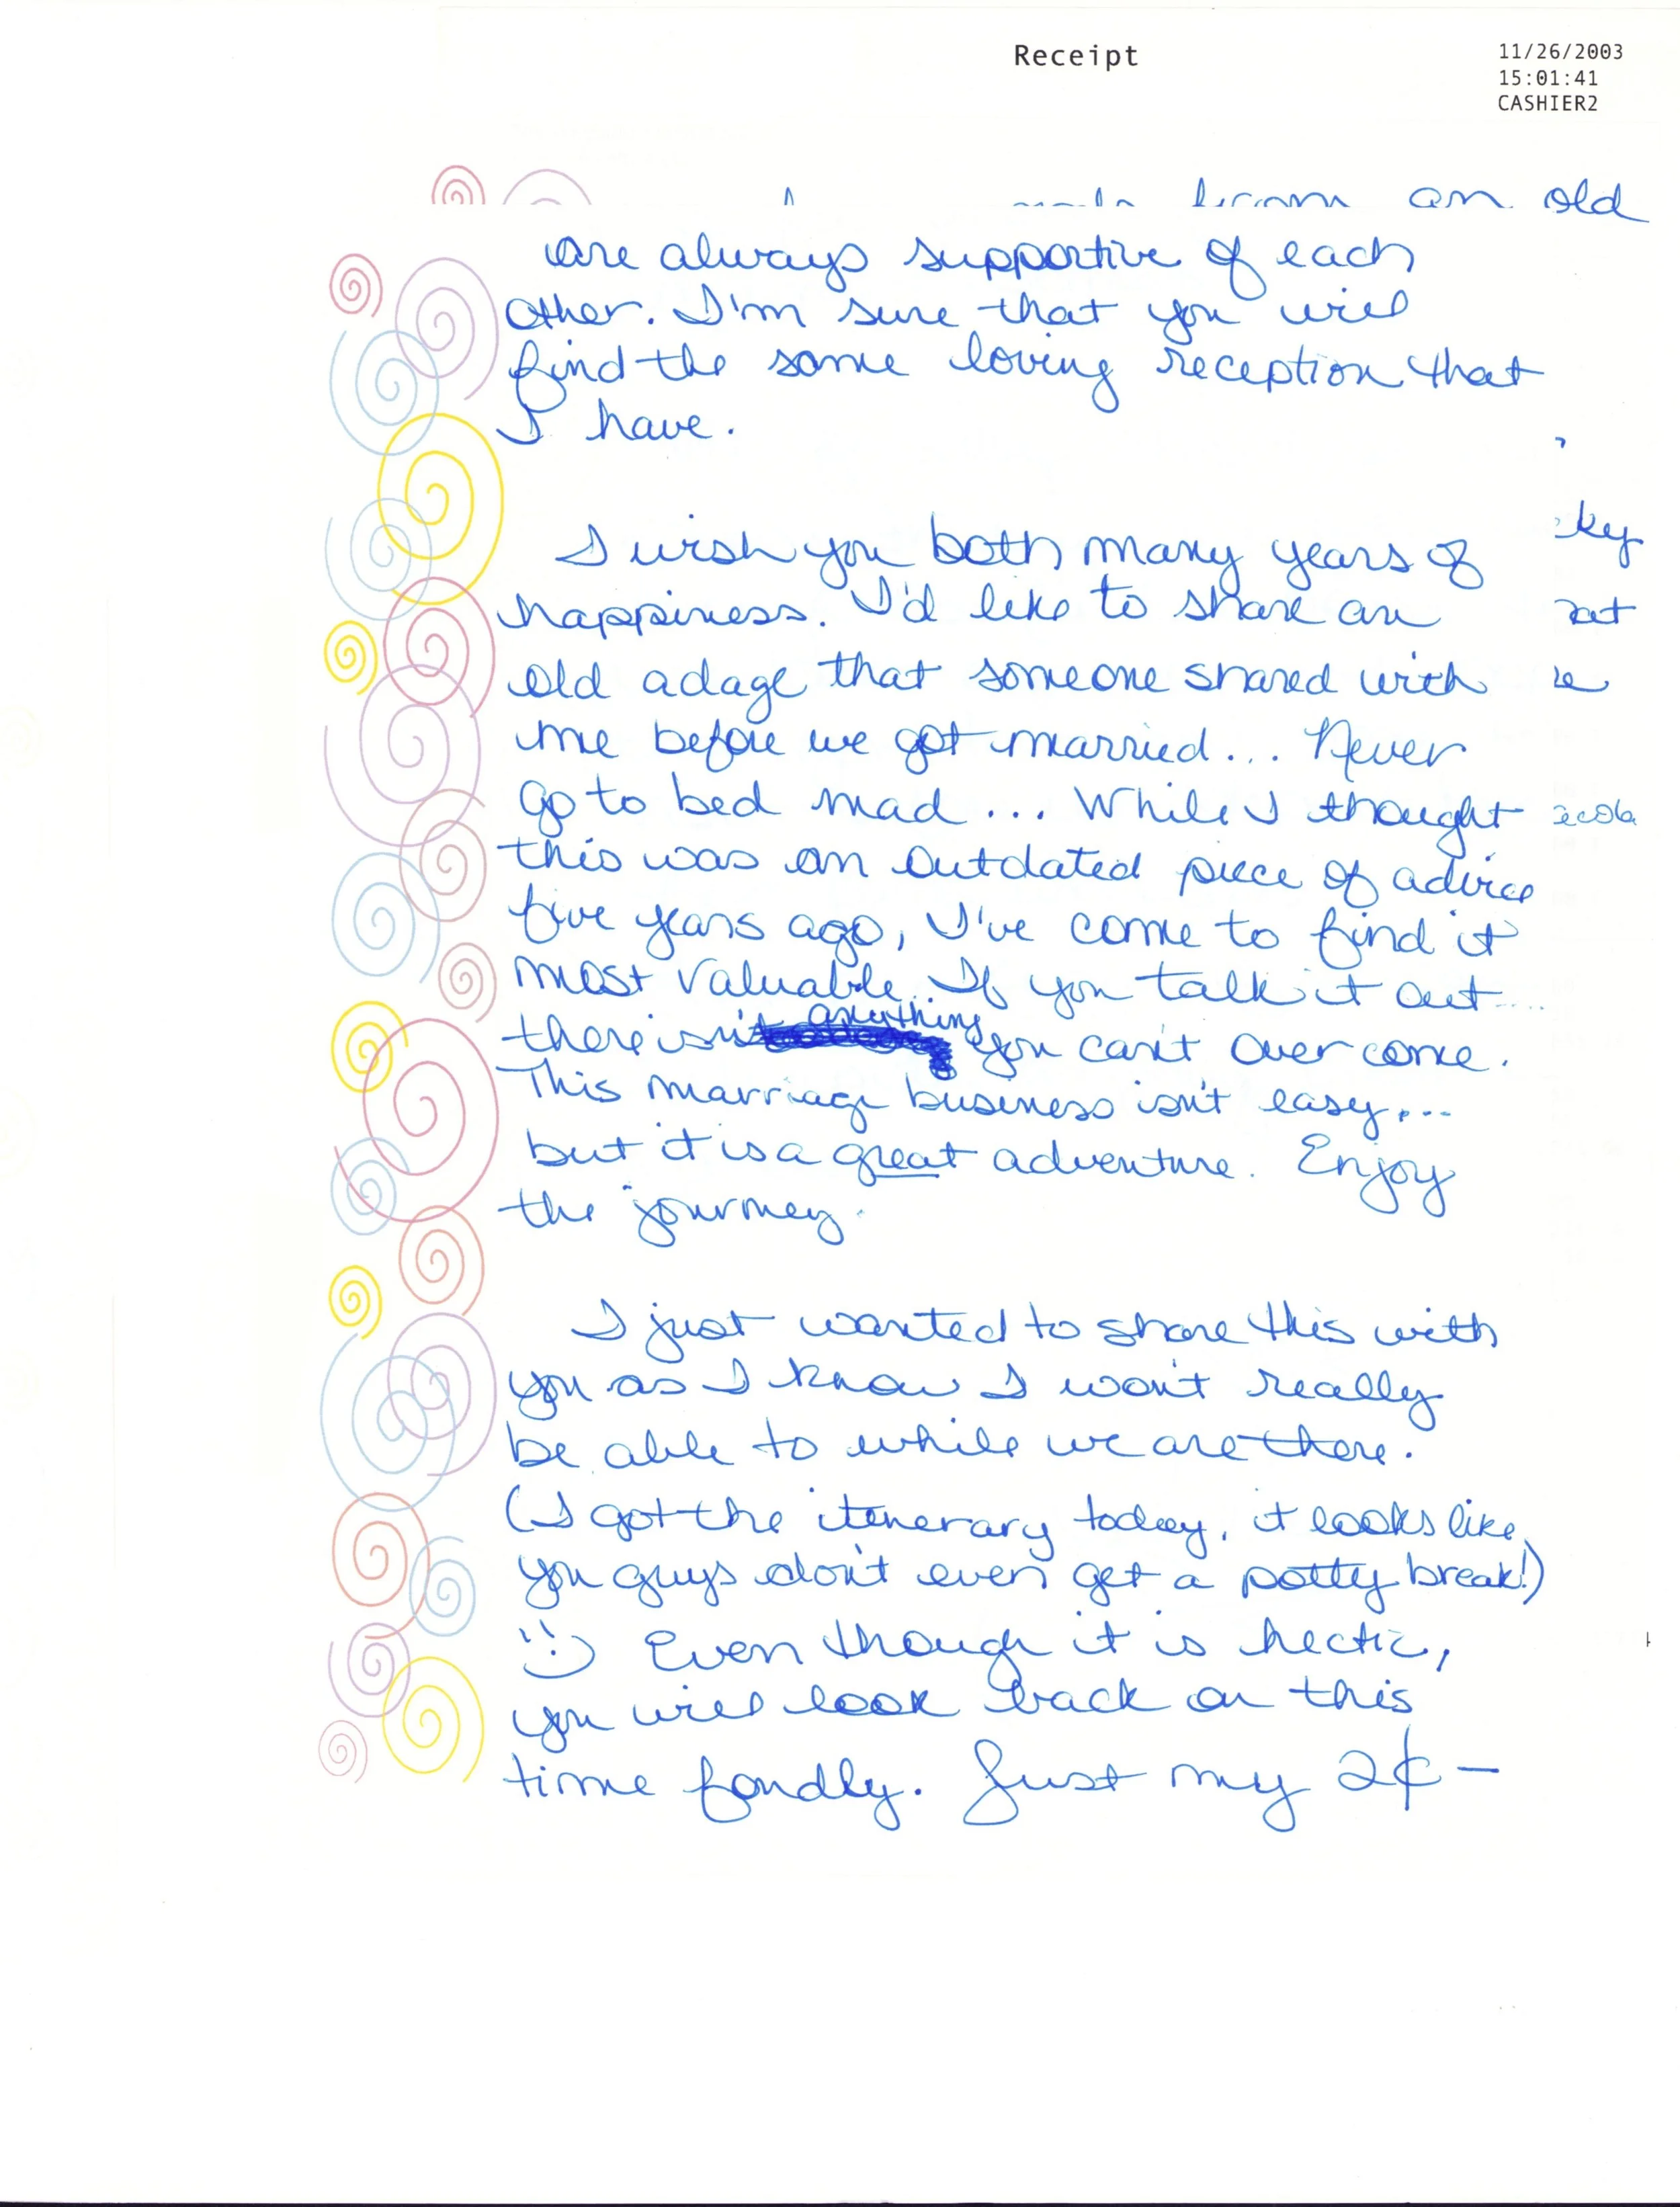 Receipt
11/26/2003
15:01:41
CASHIER2
an old
are always supportive of each
other. I'm sure that you will
find the same loving reception that
I have.
I wish you both many years of
happiness. I'd like to share an
old adage that someone shared with
me before we got married... Never
go to bed mad... While I thought
this was an outdated piece of advice
five years ago, I've come to find it
most valuable. If you talk it out
there isn't anything you can't over come.
This marriage business isn't easy...
but it is a great adventure. Enjoy
the journey.
I just wanted to share this with
you as I know I won't really
be able to while we are there.
(I got the itenerary today, it looks like
you guys don't even get a potty break!)
Even though it is hectic,
you will look back on this
time fondly. Just my 2¢ -